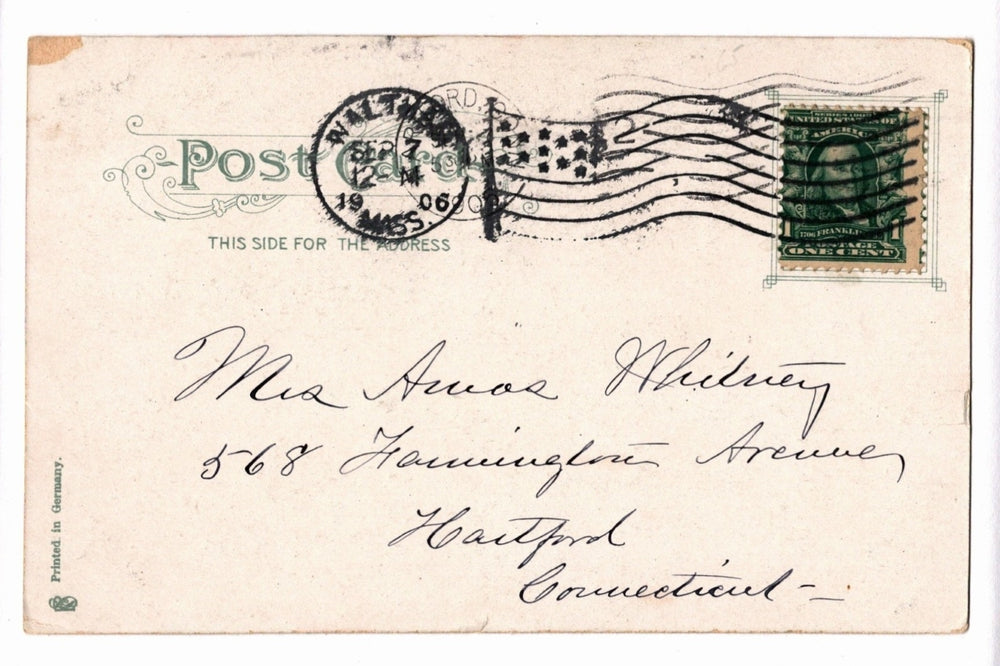 Post Card
THIS SIDE FOR THE ADDRESS
WALTHAM
SEP 7
12 M
1906
MASS.
2
SERIES 1902
UNITED STATES OF
AMERICA
1706 FRANKLIN
POSTAGE
ONE CENT
Mrs Amos Whitney
568 Farmington Avenue
Hartford
Connecticut –
Printed in Germany.